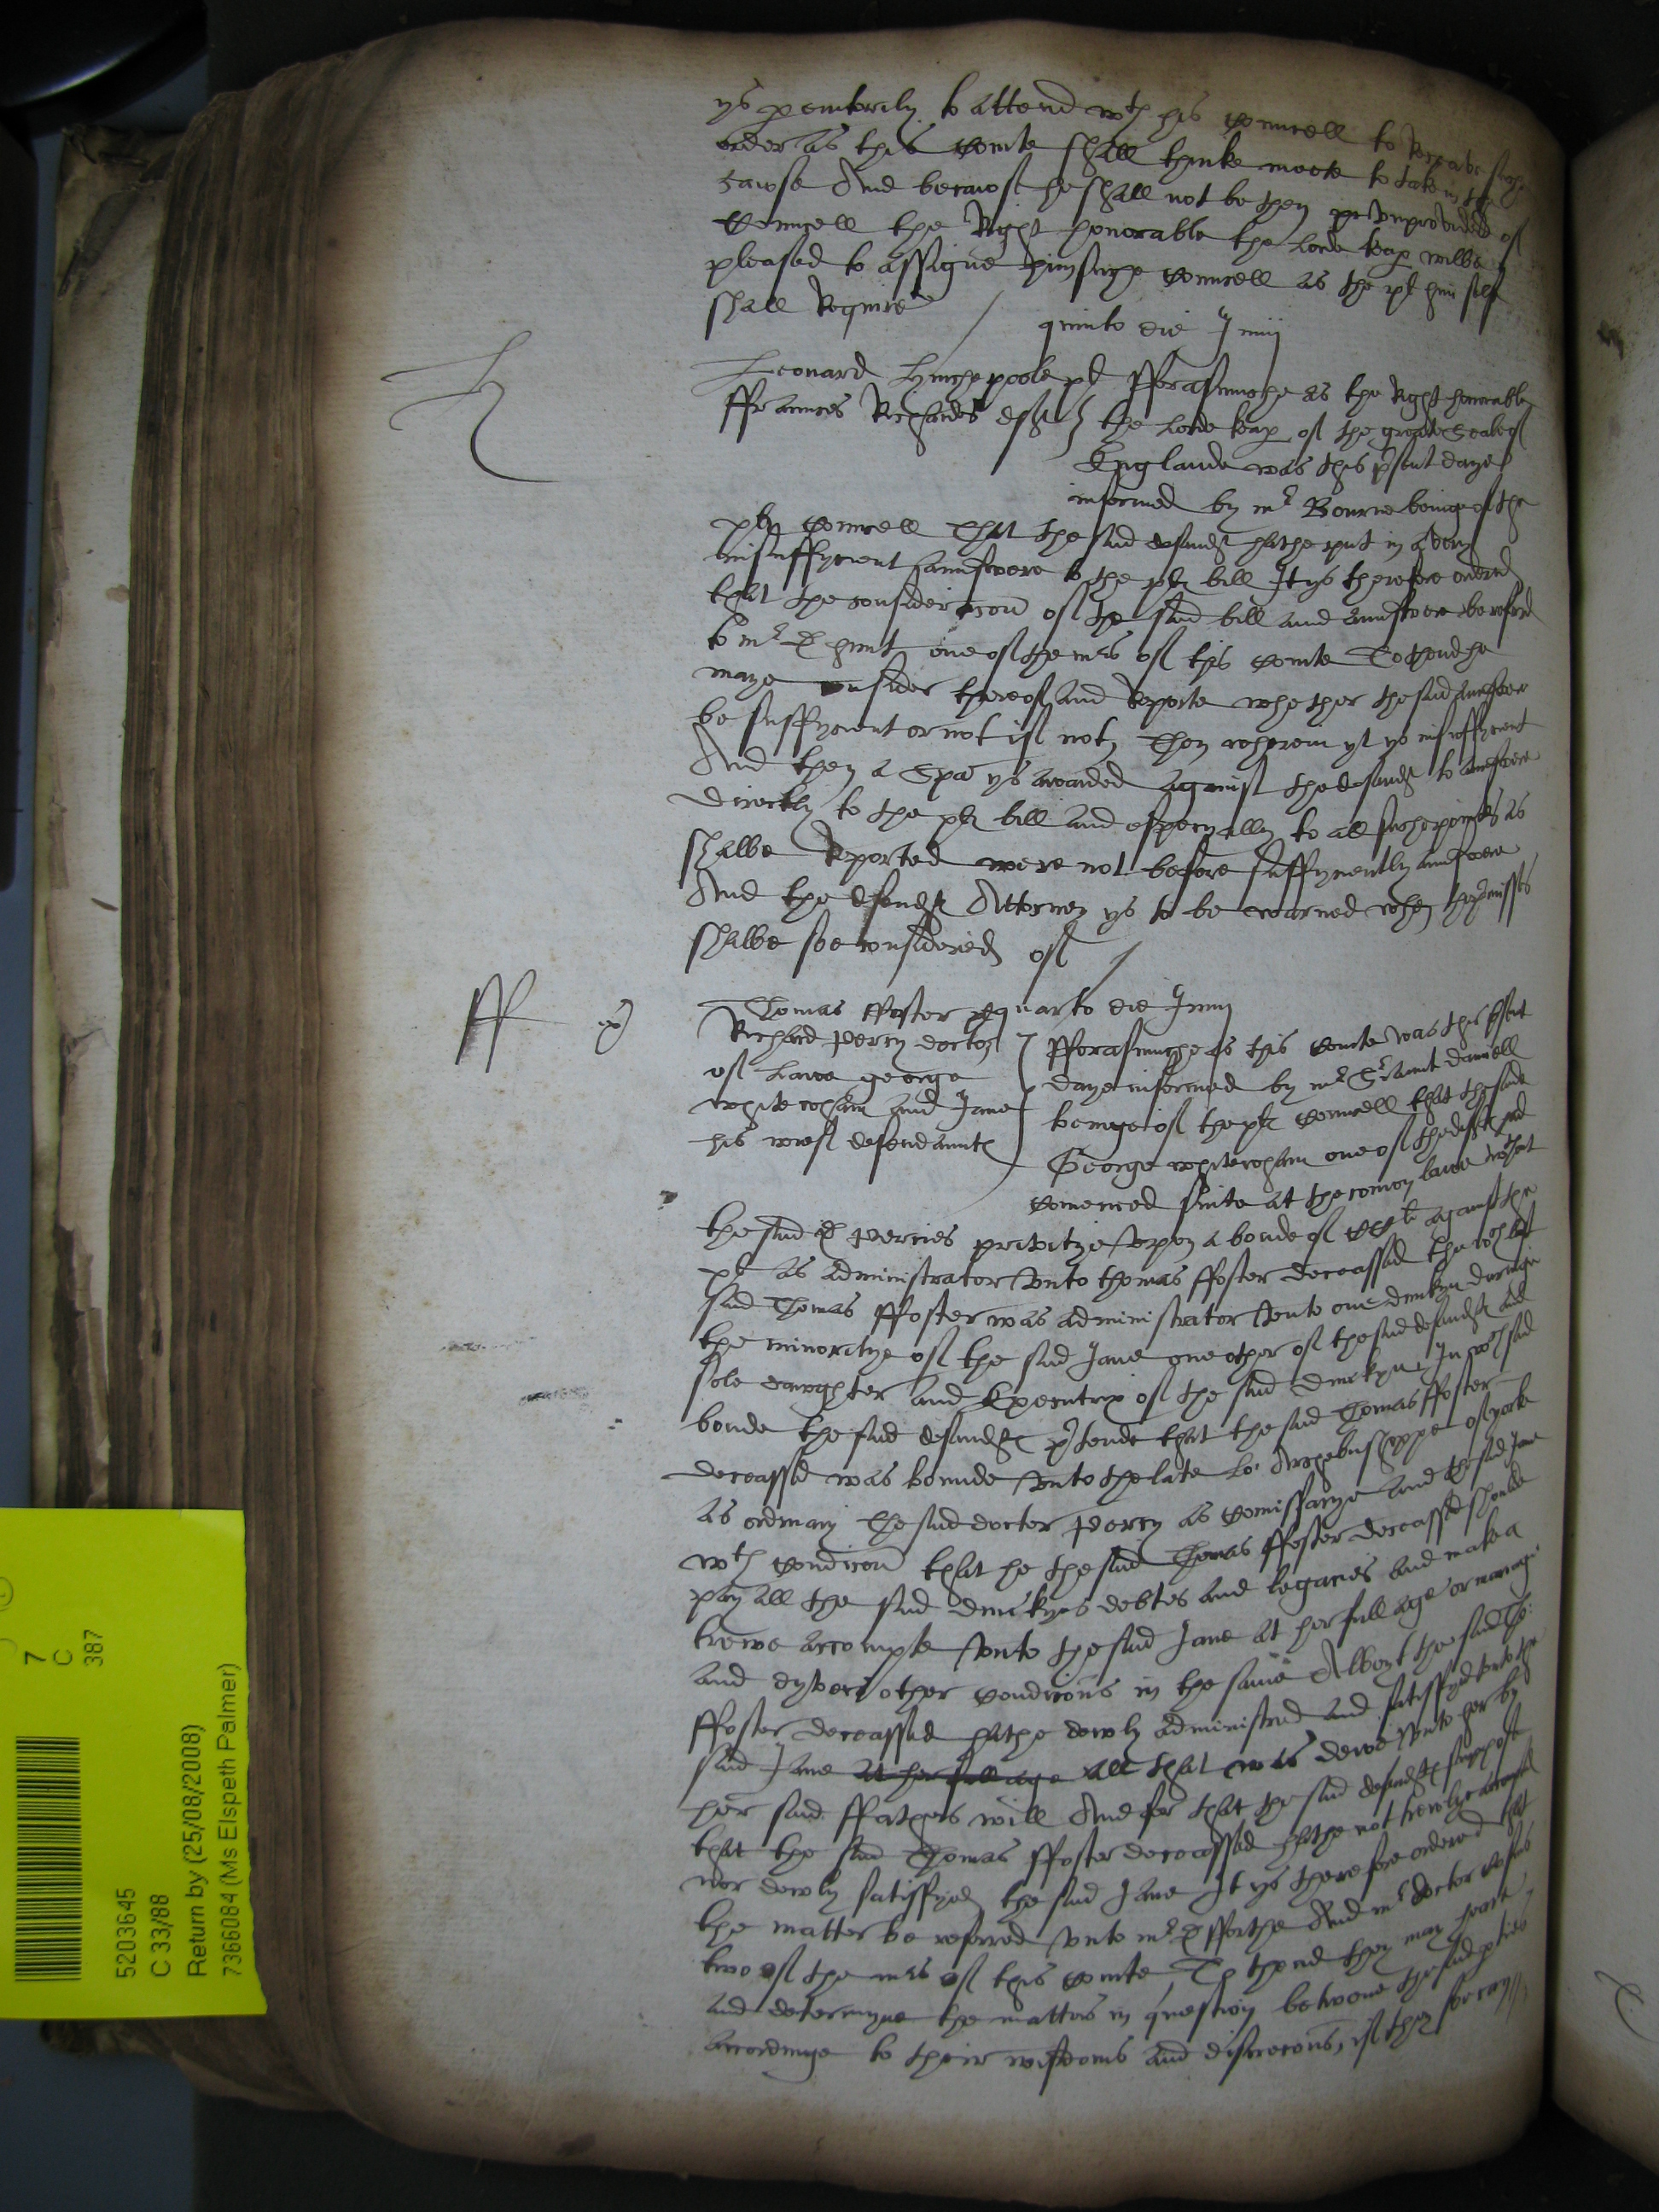 ys peremtorily to attend wth his councell to Receave suche
order as this courte shall thinke meete to take in the
cawse And becawse he shall not be then unprovided of
councell the Right honorable the Lorde keap wilbe
pleased to assigne him suche councell as the plt him self
shall Require /
quinto die Junij
Leonard Hinchepoole plt
ffraunces Richardes deft
fforasmuche as the Right honorable
the Lorde keap of the greate Seale of
Englande was this pnt daye
informed by mr Bourne beinge of the
plts councell That the said defendt hathe put in a very
insuffycient aunswere to the plts bill It ys therefore ordred
that the consideracon of the said bill and aunswere be referred
to mr D hunt one of the mrs of this courte To thend he
maye consider thereof and Reporte whether the said aunswere
be suffycient or not if not, Then wherein yt ys insuffycient
And then a Spa ys awarded against the defendt to aunswere
directly to the plts bill and especyally to all suche pointes as
shalbe Reported were not before suffycyently aunswered
And the defendts Attorney ys to be warned when the pmisses
shalbe soe considered of /
Thomas ffoster plt
quarto die Junij
Richard Percy doctor
of Lawe george
whitewham and Jane
his wief defendauntes
fforasmuche as this courte was this psent
daye informed by mr Sriaunt daniell
beinge of the plts councell that the said
George whitewham one of the defts had
comenced suite at the comon lawe without
the said D Percies privitye upon a bonde of against the
plt as administrator unto thomas ffoster deceassed the wch last
said Thomas ffoster was administrator unto one duringe
the minoritye of the said Jane one other of the said defendts and
sole daughter and Executrix of the said In wch said
bonde the said defendts ptende that the said Thomas ffoster
deceassed was bounde unto the late Lo: Archebusshoppe of yorke
as ordinary The said doctor Percy as comissarye and the said Jane
wth condicon that he the said Thomas ffoster deceassed shoulde
pay all the said debtes and legacies and make a
trewe accompte unto the said Jane at her full age or mariage
and dyvers other condicons in the same Albeyt the said Tho:
ffoster deceassed hathe dewly administred and satisffyed unto the
said Jane at her full age all that was dewe unto her by
her said ffathers will And for that the said defendts suppose
that the said Thomas ffoster deceassed hathe not trewly accompted
nor dewly satisffyed the said Jane It ys therefore ordered that
the matter be referred unto mr D fforthe And mr doctor
two of the mrs of this courte To thend they may heare
and determyne the matters in question betwene the said pties
accordinge to their wisdoms and discrecons, if they soe can //
ff
7
C
387
5203645
C 33/88
Return by (25/08/2008)
7366084 (Ms Elspeth Palmer)